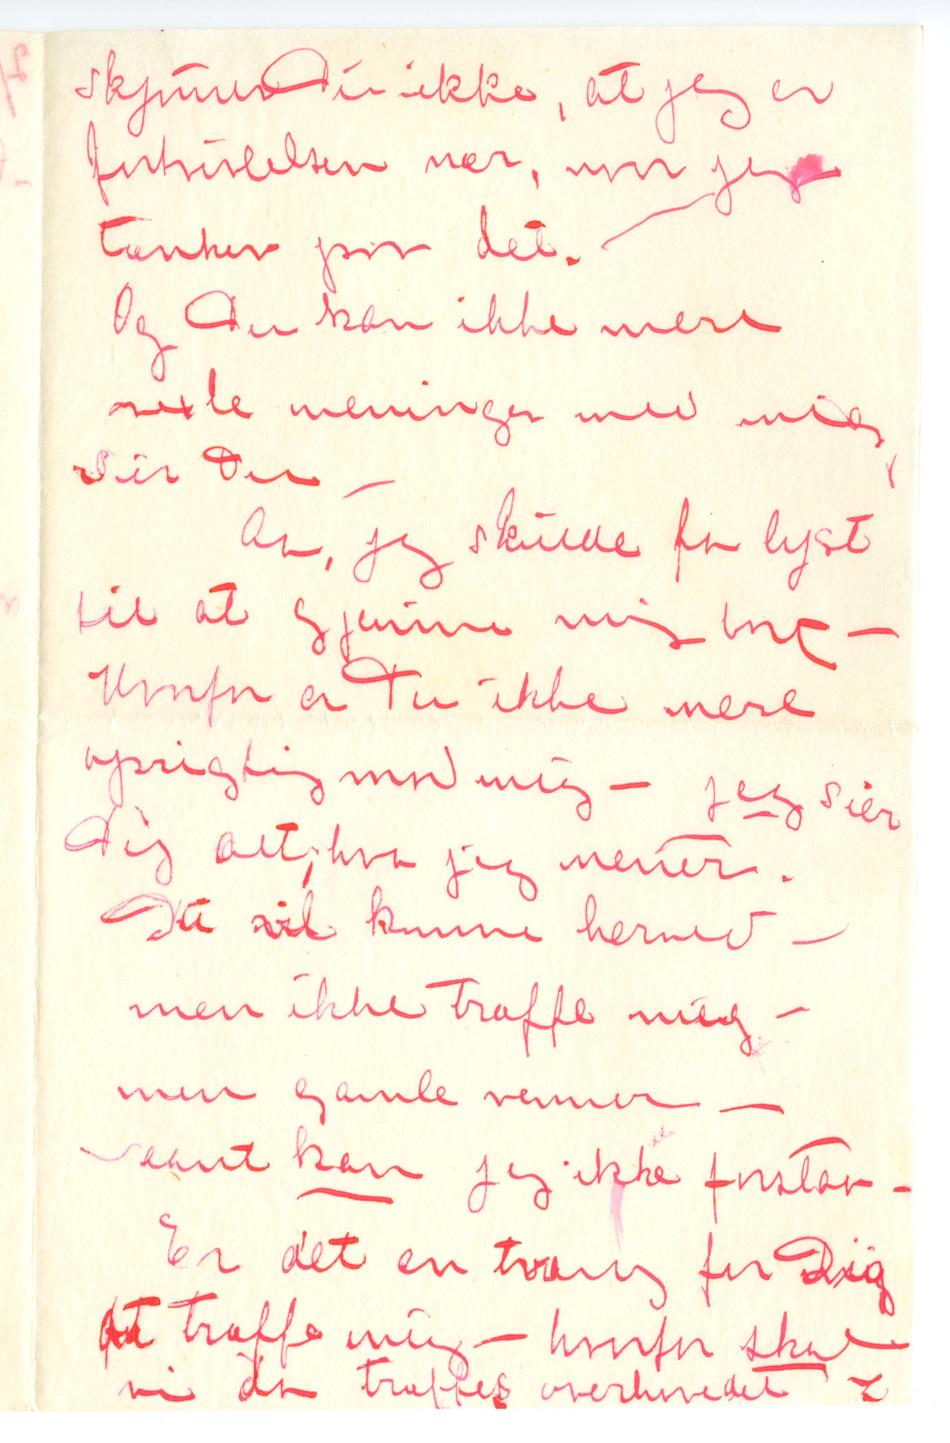 skjønner Du ikke, at jeg er
fortvivlelsen nær, naar jeg
tænker paa det. —
Og Du kan ikke mere
vexle meninger med mig,
sier Du —
Aa, jeg skulde faa lyst
til at gjemme mig bort —
Hvorfor er Du ikke mere
oprigtig mod mig — jeg sier
Dig alt, hva jeg mener.
Du vil kunne herned —
men ikke træffe mig —
men gamle venner —
saant kan jeg ikke forstaa —
Er det en tvang for Dig
at træffe mig — hvorfor skal
vi da træffes overhovedet ?